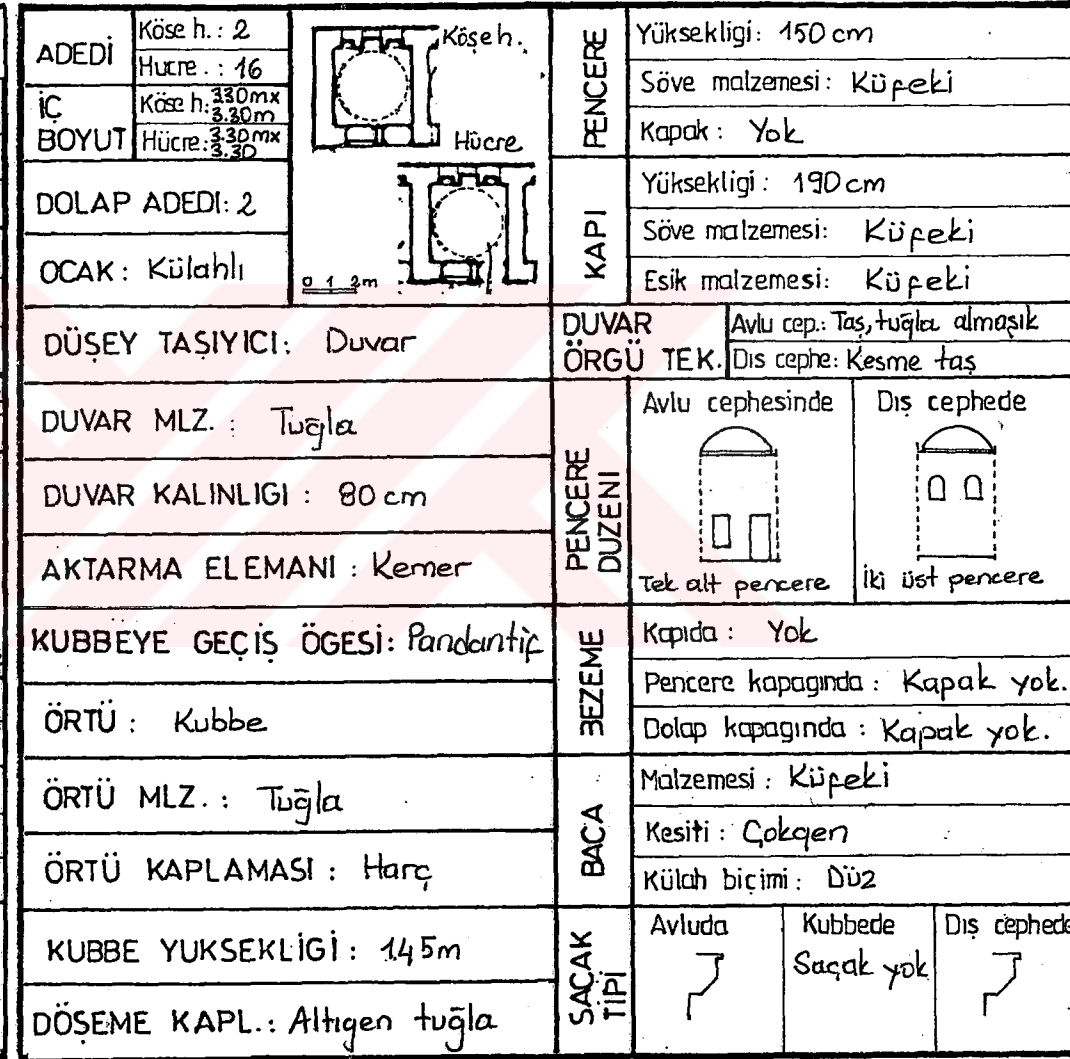 ADEDİ
Köse h. : 2
Hucre. : 16
İÇ BOYUT
Köse h: 330mx
3.30m
Hücre: 3.30mx
3.30
DOLAP ADEDI: 2
OCAK : Külahlı
Köşe h.
Hücre
0 1 2m
DÜŞEY TAŞIYICI: Duvar
DUVAR MLZ. : Tuğla
DUVAR KALINLIGI : 80 cm
AKTARMA ELEMANI : Kemer
KUBBEYE GEÇİŞ ÖGESİ: Pandantif
ÖRTÜ : Kubbe
ÖRTÜ MLZ. : Tuğla
ÖRTÜ KAPLAMASI : Harç
KUBBE YUKSEKLİGİ : 145m
DÖŞEME KAPL.: Altıgen tuğla
PENCERE
Yüksekligi: 150 cm
Söve malzemesi: Küfeki
Kapak : Yok
KAPI
Yüksekligi : 190 cm
Söve malzemesi: Küfeki
Esik malzemesi: Küfeki
DUVAR
ÖRGÜ TEK.
Avlu cep.: Taş, tuğla almaşık
Dıs cephe: Kesme taş
PENCERE
DUZENI
Avlu cephesinde
Tek alt pencere
Dış cephede
İki üst pencere
BEZEME
Kapıda : Yok
Pencere kapagında : Kapak yok.
Dolap kapagında : Kapak yok.
BACA
Malzemesi : Küfeki
Kesiti : Çokgen
Külah biçimi : Düz
SAÇAK
TİPİ
Avluda
Kubbede
Saçak yok
Dış cephede